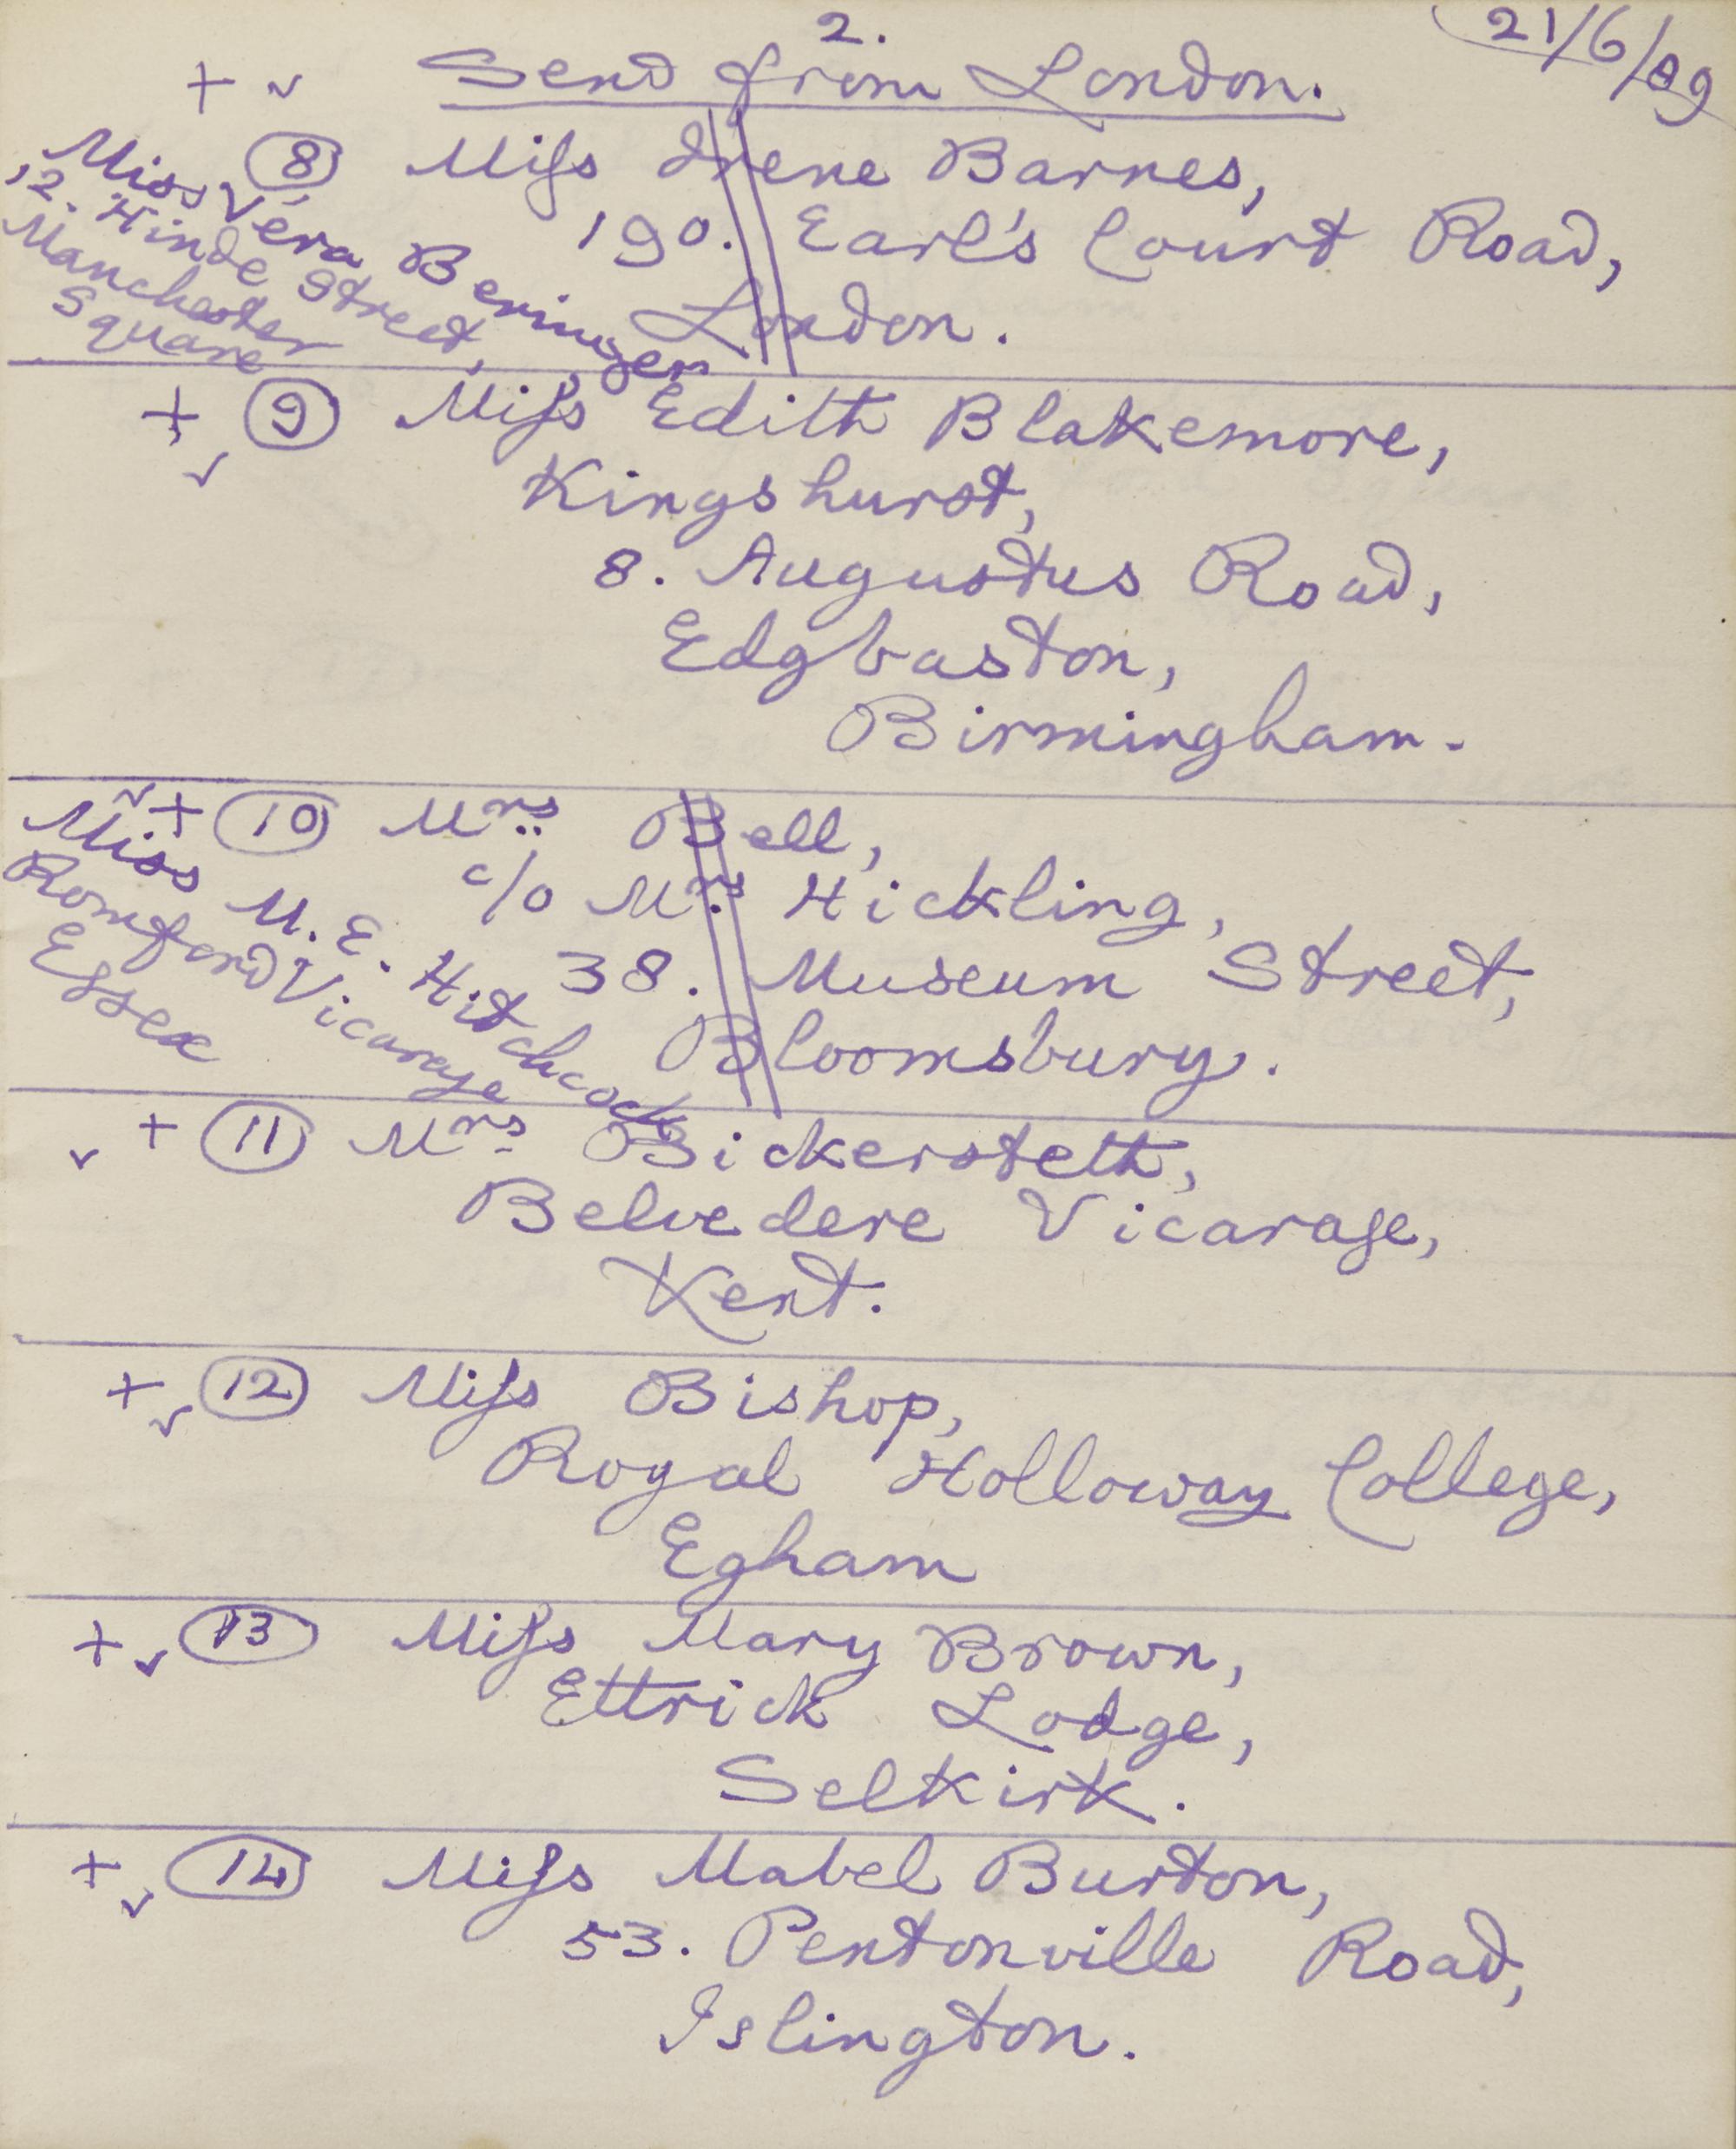 2.
21/6/89
+ ✓ Send from London.
⑧ Miss Irene Barnes,
190. Earl's Court Road,
London.
Miss Vera Beringer
12. Hinde Street,
Manchester
Square
+ ✓ ⑨ Miss Edith Blakemore,
Kingshurst,
8. Augustus Road,
Edgbaston,
Birmingham.
✓ + ⑩ Mrs Bell,
c/o Mrs Hickling,
38. Museum Street,
Bloomsbury.
Miss M. E. Hitchcock
Romford Vicarage
Essex
✓ + ⑪ Mrs Bickersteth,
Belvedere Vicarage,
Kent.
+ ✓ ⑫ Miss Bishop,
Royal Holloway College,
Egham
+ ✓ ⑬ Miss Mary Brown,
Ettrick Lodge,
Selkirk.
+ ✓ ⑭ Miss Mabel Burton,
53. Pentonville Road,
Islington.